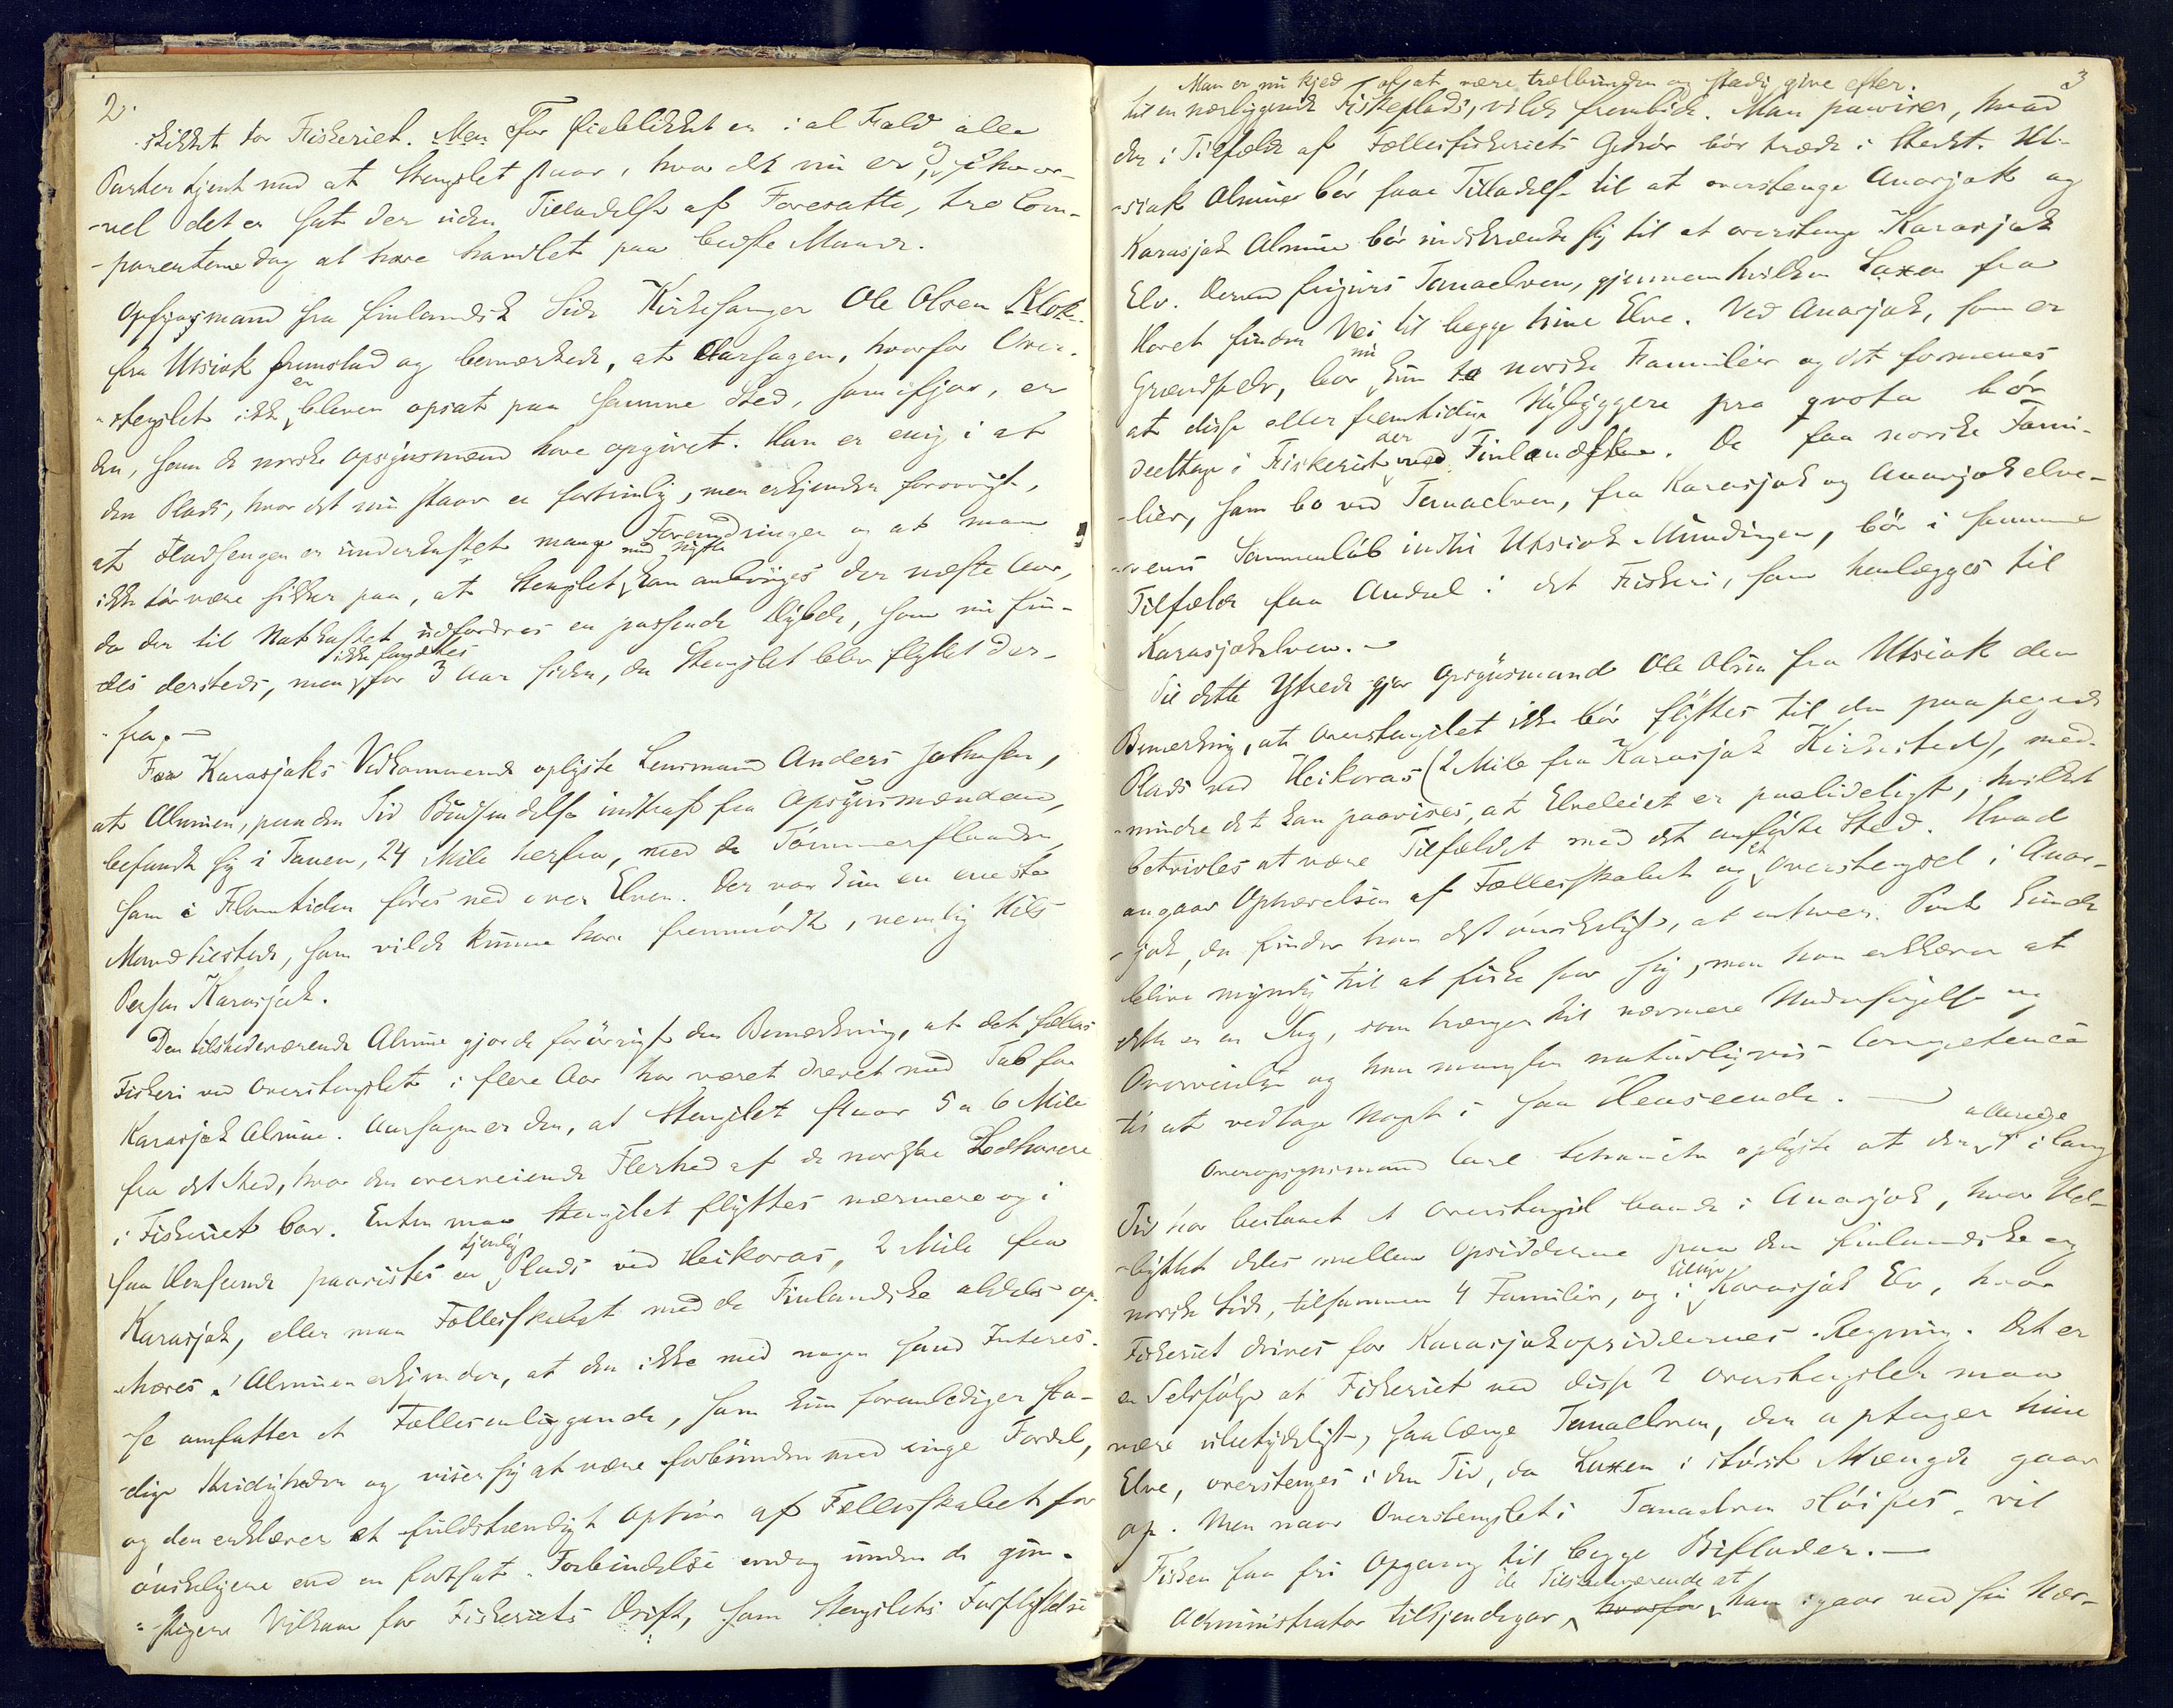 2.
skikket for Fiskeriet. Men For Øieblikket er i al Fald alle
Parter tjent med at Stengslet staar, hvor det nu er, og ihvor-
-vel det er sat der uden Tilladelse af Foresatte, tro Com-
-parenterne dog at have handlet paa bedste Maade.
Opsynsmand fra finlandsk Side Kirkesanger Ole Olsen
fra Utsiok fremstod og bemærkede, at Aarsagen, hvorfor Over-
-stengslet ikke er bleven opsat paa samme Sted, som ifjor, er
den, som de norske Opsynsmænd have opgivet. Han er enig i at
den Plads, hvor det nu staar er fortrinlig, men erkjender forøvrigt,
at Flodsengen er underkastet mange Forandringer og at man
ikke tør være sikker paa, at Stengslet med Nytte kan anbringes der næste Aar,
da der til Notkastet udfordres en passende Dybde, som nu fin-
des dersteds, men ikke fandtes for 3 Aar siden, da Stengslet blev flyttet der-
-fra. —
For Karasjoks Vedkommende oplyste Lensmand Anders Johnsen,
at Almuen, paa den Tid Budsendelse indtraf fra Opsynsmændene,
befandt sig i Tanen, 24 Mile herfra, med de Tømmerflaader,
som i Flomtiden føres ned over Elven. Der var kun en eneste
Mand tilstede, som vilde kunne have fremmødt, nemlig Nils
Persen Karasjok.
Den tilstedeværende Almue gjorde forøvrigt den Bemærkning, at det fælles
Fiskeri ved Overstengslet i flere Aar har været drevet med Tab for
Karasjok Almue. Aarsagen er den, at Stengslet staar 5 a 6 Mile
fra det Sted, hvor den overveiende Flerhed af de norske Lodhavere
i Fiskeriet bor. Enten maa Stengslet flyttes nærmere og i
saa Henseende paavistes en tjenlig Plads ved Heikoras, 2 Mile fra
Karasjok, eller maa Fællesskabet med de Finlandske aldeles op-
-hæves. Almuen erkjender, at den ikke med nogen sand Interes-
-se omfatter et Fællesanliggende, som kun foranlediger sta-
-dige Stridigheder og viser sig at være forbunden med ringe Fordel,
og den erklærer et fuldstændigt Ophør af Fællesskabet for
ønskeligere end en fortsat Forbindelse endog under de gun-
-stigere Vilkaar for Fiskeriets Drift, som Stengslets Forflyttelse
3
Man er nu kjed af at være trælbunden og stadig give efter.
til en nærliggende Fiskeplads, vilde frembide. Man paaviser, hvad
der i Tilfælde af Fællesfiskeriets Ophør bør træde i Stedet. Ut-
-siok Almue bør faae Tilladelse til at overstenge Anarjok og
Karasjok Almue bør indskrænke sig til at overstenge Karasjok
Elv. Derved frigives Tanaelven, gjennem hvilken Laxen fra
Havet finder Vei til begge hine Elve. Ved Anarjok, som er
Grændseelv, bor nu kun to norske Familier og det formenes
at disse eller fremtidige Nybyggere pro qvota bør
deeltage i Fiskeriet der med Finlænderne. De faa norske Fami-
-lier, som bo ved Tanaelven, fra Karasjok og Anarjokelve-
-nes Sammenløb indtil Utsiok-Mundingen, bør i samme
Tilfælde faa Andel i det Fiskeri, som henlægges til
Karasjokelven. —
Til dette Ytrede gjør Opsynsmand Ole Olsen fra Utsiok den
Bemærkning, at Overstengslet ikke bør flyttes til den paapegede
Plads ved Heikoras (2 Mile fra Karasjok Kirkested), med-
-mindre det kan paavises, at Elveleiet er paalideligt, hvilket
betvivles at være Tilfældet med det anførte Sted. Hvad
angaar Ophævelsen af Fællesskabet og et Overstengsel i Anar-
-jok, da finder han det ønskeligt, at enhver Part kunde
blive myndig til at fiske for sig, men han erklærer at
dette er en Sag, som trænger til nærmere Undersøgelse og
Overveielse og han mangler naturligvis Competence
til at vedtage Noget i saa Henseende. —
Overopsynsmand Carl oplyste at der allerede i lang
Tid har bestaaet et Overstengsel baade i Anarjok, hvor Ud-
-byttet deles mellem Opsidderne paa den finlandske og
norske Side, tilsammen 4 Familier, og i tillige Karasjok Elv, hvor
Fiskeriet drives for Karasjokopsiddernes Regning. Det er
en Selvfølge at Fiskeriet ved disse 2 Overstengsler maa
være ubetydeligt, saalænge Tanaelven, der optager hine
Elve, overstenges i den Tid, da Laxen i størst Mængde gaar
op. Men naar Overstengslet i Tanaelven sløifes, vil
Fisken faa fri Opgang til begge Bifloder. —
Administrator tilkjendegav de Tilstedeværende at hvorfor han igaar ved sin Nær-